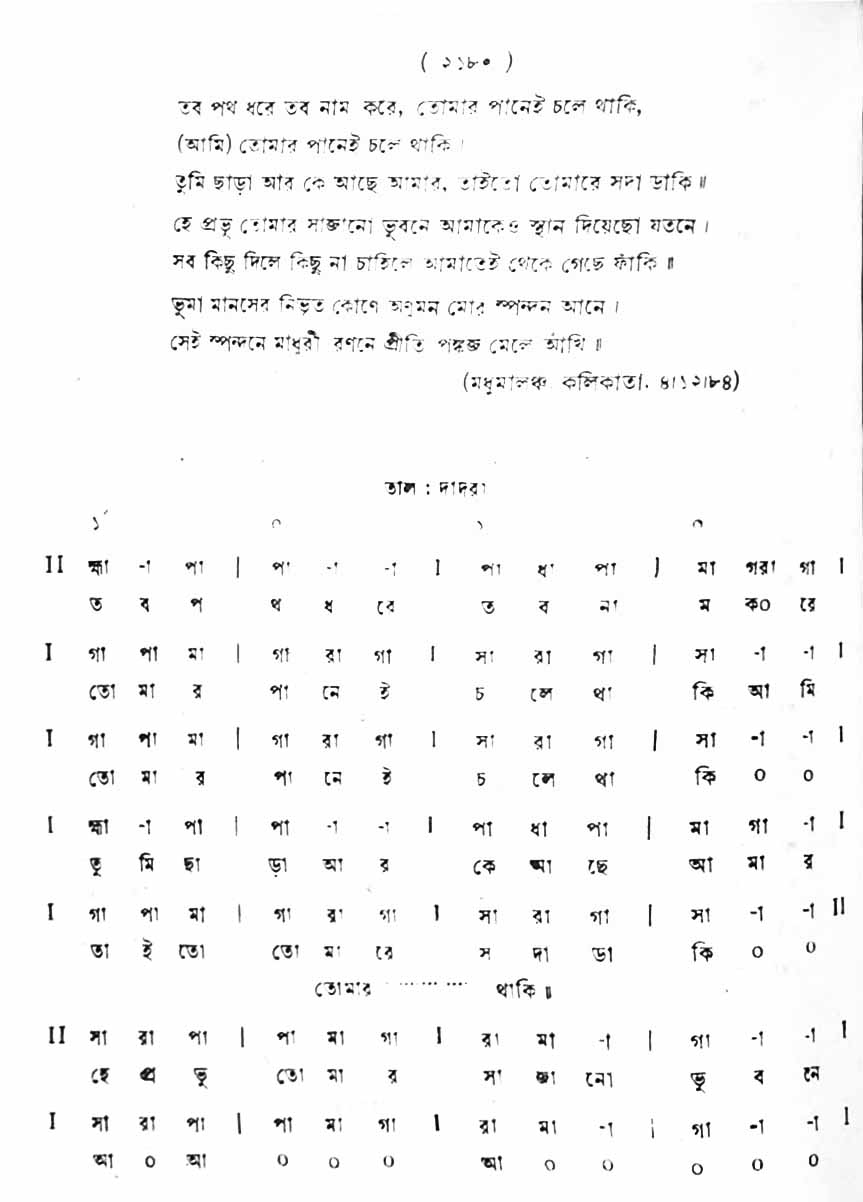 ( ২১৮০ )
তব পথ ধরে তব নাম করে, তোমার পানেই চলে থাকি,
(আমি) তোমার পানেই চলে থাকি ।
তুমি ছাড়া আর কে আছে আমার, তাইতো তোমারে সদা ডাকি ॥
হে প্রভু তোমার সাজানো ভুবনে আমাকেও স্থান দিয়েছো যতনে ।
সব কিছু দিলে কিছু না চাহিলে আমাতেই থেকে গেছে ফাঁকি ॥
ভূমা মানসের নিভৃত কোণে অণুমন মোর স্পন্দন আনে ।
সেই স্পন্দনে মাধুরী রণনে প্রীতি পঙ্কজ মেলে আঁখি ॥
(মধুমালঞ্চ কলিকাতা. ৪।১২।৮৪)
তাল : দাদরা
১´ ০ ১ ০
II হ্মা -া পা | পা -া -া I পা ধা পা | মা গরা গা I
ত ব প থ ধ রে ত ব না ম ক০ রে
I গা পা মা | গা রা গা I সা রা গা | সা -া -া I
তো মা র পা নে ই চ লে থা কি আ মি
I গা পা মা | গা রা গা I সা রা গা | সা -া -া I
তো মা র পা নে ই চ লে থা কি ০ ০
I হ্মা -া পা | পা -া -া I পা ধা পা | মা গা -া I
তু মি ছা ড়া আ র কে আ ছে আ মা র
I গা পা মা | গা রা গা I সা রা গা | সা -া -া II
তা ই তো তো মা রে স দা ডা কি ০ ০
তোমার ·········· থাকি ॥
II সা রা পা | পা মা গা I রা মা -া | গা -া -া I
হে প্র ভু তো মা র সা জা নো ভু ব নে
I সা রা পা | পা মা গা I রা মা -া | গা -া -া I
আ ০ আ ০ ০ ০ আ ০ ০ ০ ০ ০